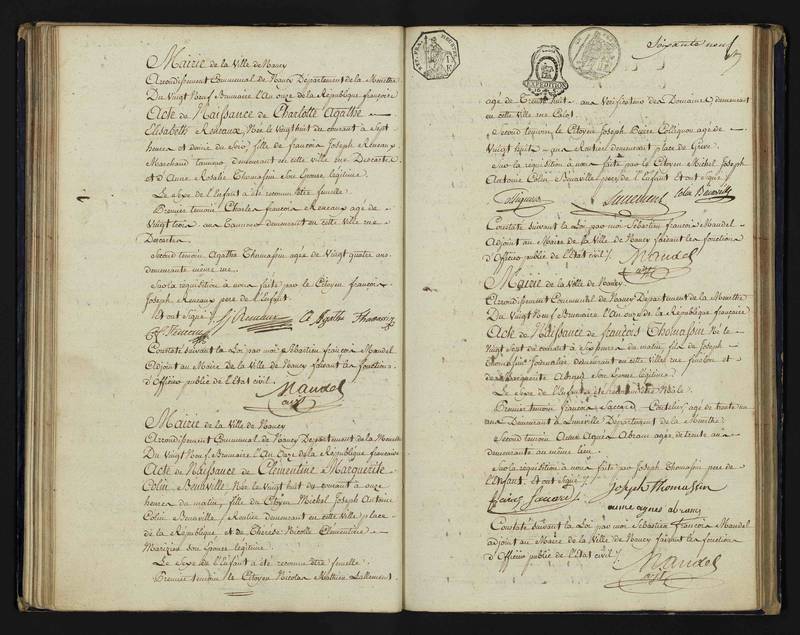 Mairie de la Ville de Nancy
Arrondissement Communal de Nancy Departement de la Meurthe
Du Vingt Neuf Brumaire l'An onze de la République françoise
Acte de Naissance de Charlotte Agathe
Elisabeth Reneaux, Née le Vingt huit du courant à Sept
heures et demie du Soir, fille de françois Joseph Reneaux
Marchand tanneur demeurant en cette Ville rue Descartes
et d'Anne Rosalie Thomassin Son Epouse légitime.
Le Sexe de l'Enfant a été reconnu être femelle.
Premier temoin Charles françois Reneaux agé de
Vingt trois ans Tanneur demeurant en cette Ville rue
Descartes
Second temoin Agathe Thomassin agée de Vingt quatre ans
demeurante même rue.
Sur la requisition à nous faite par le Citoyen françois
Joseph Reneaux pere de l'Enfant.
Et ont Signé
Agathe Thomassin
Constaté suivant la Loi par moi Sébastien françois Mandel
Adjoint au Maire de la Ville de Nancy faisant les fonctions
d'Officier public de l'Etat civil.
Mandel
adjt
Mairie de la Ville de Nancy
Arrondissement Communal de Nancy Departement de la Meurthe
Du Vingt Neuf Brumaire l'An Onze de la République françoise
Acte de Naissance de Clémentine Marguerite
Colin Benaville, Née le Vingt huit du courant à onze
heures du matin, fille du Citoyen Michel Joseph Antoine
Colin Benaville, Rentier demeurant en cette Ville place
de la République, et de Thérèse Nicolle Clementine
Son Epouse légitime.
Le Sexe de l'Enfant a été reconnu être femelle.
Premier temoin le Citoyen Nicolas Mathieu Lallement
Soixante neuf
EXPEDITION
agé de Trente huit ans Vérificateur des Domaines, demeurant
en cette Ville rue
Second temoin, le Citoyen Joseph agé de
Vingt Sept ans Rentier demeurant place de Grève.
Sur la réquisition à nous faite par le Citoyen Michel Joseph
Antoine Colin Benaville pere de l'Enfant et ont Signé
Lallement Colin Benaville
Constaté suivant la Loi par moi Sébastien françois Mandel
Adjoint au Maire de la Ville de Nancy faisant les fonctions
d'Officier public de l'Etat civil
Mandel
adjt
Mairie de la Ville de Nancy
Arrondissement Communal de Nancy Département de la Meurthe
Du Vingt Neuf Brumaire l'An Onze de la République françoise
Acte de Naissance de françois Thomassin Né le
Vingt Sept du courant à Six heures du matin, fils de Joseph
Thomassin Journalier demeurant en cette Ville rue et
de Marguerite Abram Son Epouse légitime.
Le Sexe de l'Enfant a été reconnu être Mâle.
Premier temoin françois Saccard Coutelier, agé de trente un
ans Demeurant à Luneville Département de la Meurthe
Second temoin Anne Agnès Abram agée de trente ans
demeurante au même lieu.
Sur la réquisition à nous faite par Joseph Thomassin pere de
l'Enfant. et ont Signé
françois Saccard Joseph Thomassin
anne agnes abram
Constaté suivant la Loi par moi Sébastien françois Mandel
adjoint au Maire de la Ville de Nancy faisant les fonctions
d'Officier public de l'Etat civil
Mandel
adjt